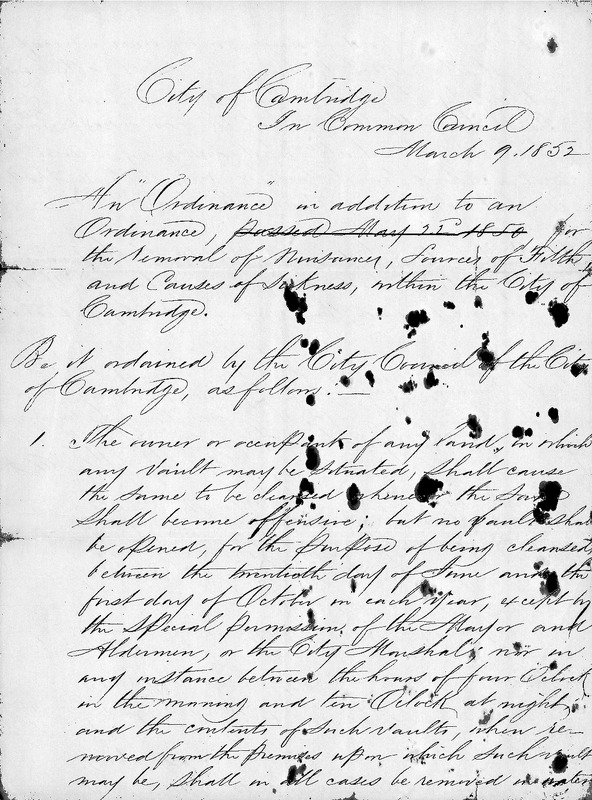 City of Cambridge
In Common Council
March 9. 1852
An "Ordinance" in addition to an
Ordinance, passed May 22d 1850 for
the removal of Nuisances, Sources of Filth
and Causes of Sickness, within the City of
Cambridge.
Be it ordained by the City Council of the City
of Cambridge, as follows. —
1. The owner or occupant of any land, in which
any vault may be situated, shall cause
the same to be cleansed whenever the same
shall become offensive; but no vault shall
be opened, for the purpose of being cleansed,
between the twentieth day of June and the
first day of October in each year, except by
the special permission of the Mayor and
Aldermen, or the City Marshal; nor in
any instance between the hours of four Oclock
in the morning and ten Oclock at night,
and the contents of such vaults, when re-
moved from the premises upon which such vault
may be, shall in all cases be removed in water